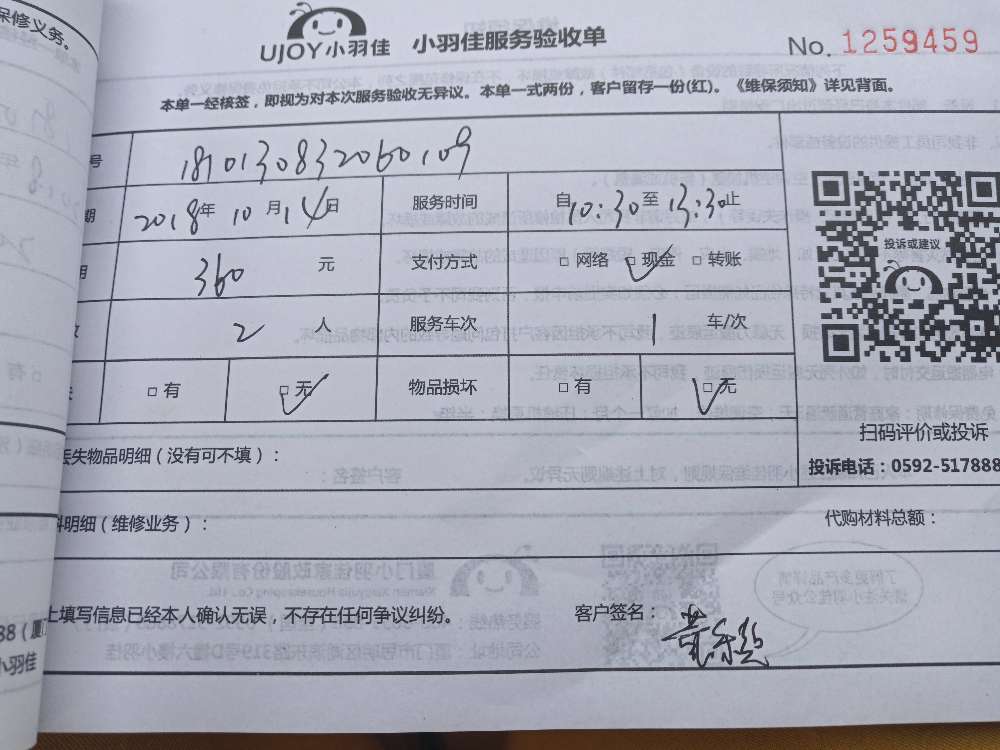 保修义务。
UJOY小羽佳 小羽佳服务验收单 No. 1259459
本单一经核签，即视为对本次服务验收无异议。本单一式两份，客户留存一份(红)。《维保须知》详见背面。
号 1810130832060109
期 2018年10月14日 服务时间 自10:30至13:30止
用 360元 支付方式 □ 网络 □✓现金 □ 转账
数 2人 服务车次 1车/次
失 □ 有 □✓无 物品损坏 □ 有 □✓无
投诉或建议
扫码评价或投诉
投诉电话：0592-517888
丢失物品明细（没有可不填）：
料明细（维修业务）： 代购材料总额：
上填写信息已经本人确认无误，不存在任何争议纠纷。 客户签名：
88（厦
小羽佳